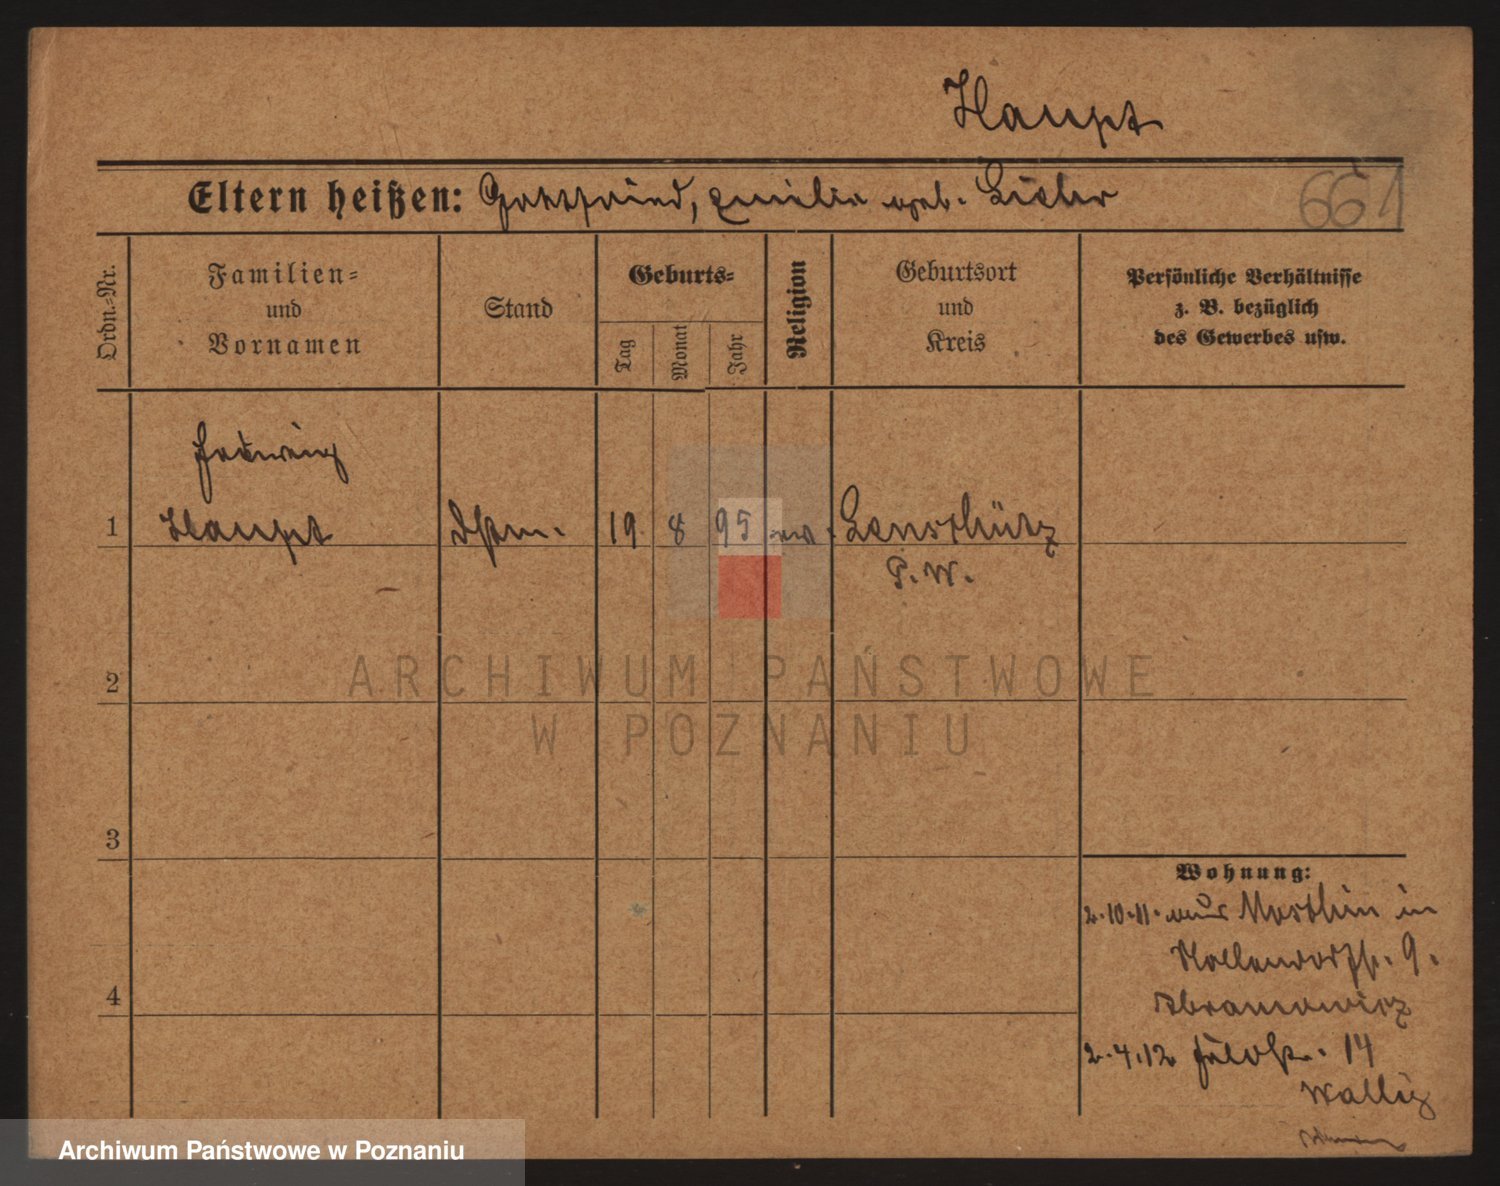 Haupt
Eltern heißen: Gottfried, Emilie geb.
661
Ordn.-Nr.
Familien-
und
Vornamen
Stand
Geburts-
Tag
Monat
Jahr
Religion
Geburtsort
und
Kreis
Persönliche Verhältnisse
z. B. bezüglich
des Gewerbes usw.
Hedwig
1 Haupt 19 8 95 ev. Lenschütz
P. W.
2
3
4
Wohnung:
2.10.11. aus in
Nollendorfstr. 9.
Abramowicz
2.4.12 Feldstr. 14
Wallig
ARCHIWUM PAŃSTWOWE
W POZNANIU
Archiwum Państwowe w Poznaniu